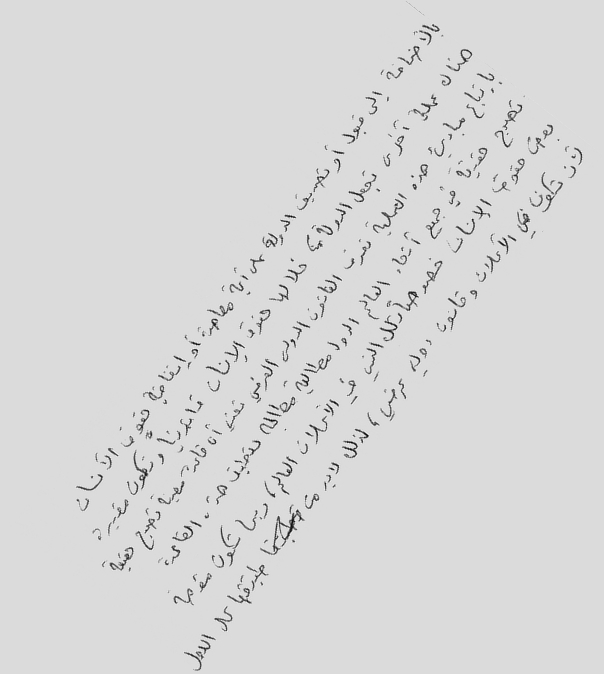 بالاضافة إلى قبول أو تصديق الدولة على أية معاهدة أو إتفاقية لحقوق الانسان
هناك عملية أخرى تجعل الدولة من خلالها حقوق الإنسان قانونيا وتكون مقيدة
بإتباع مبادئ هذه العملية تعرف القانون الدولي العرفي تعني أن قاعدة معينة تصبح حقيقة
تصبح حقيقة في جميع أنحاء العالم الدول مطالبة مطالبة بتطبيق هذه القاعدة
بعض حقوق الانسان خصوصا تلك التي في الاعلان العالمي ربما تكون مقدمة
لأن تكون في الاعلان وقانون دولي عرفي، لذلك لابد من تطبيقها على الدول